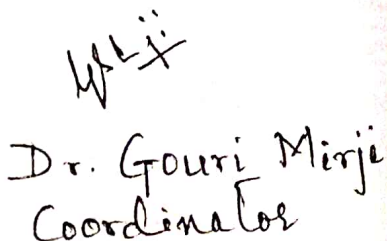 Dr. Gouri Mirji
Coordinator